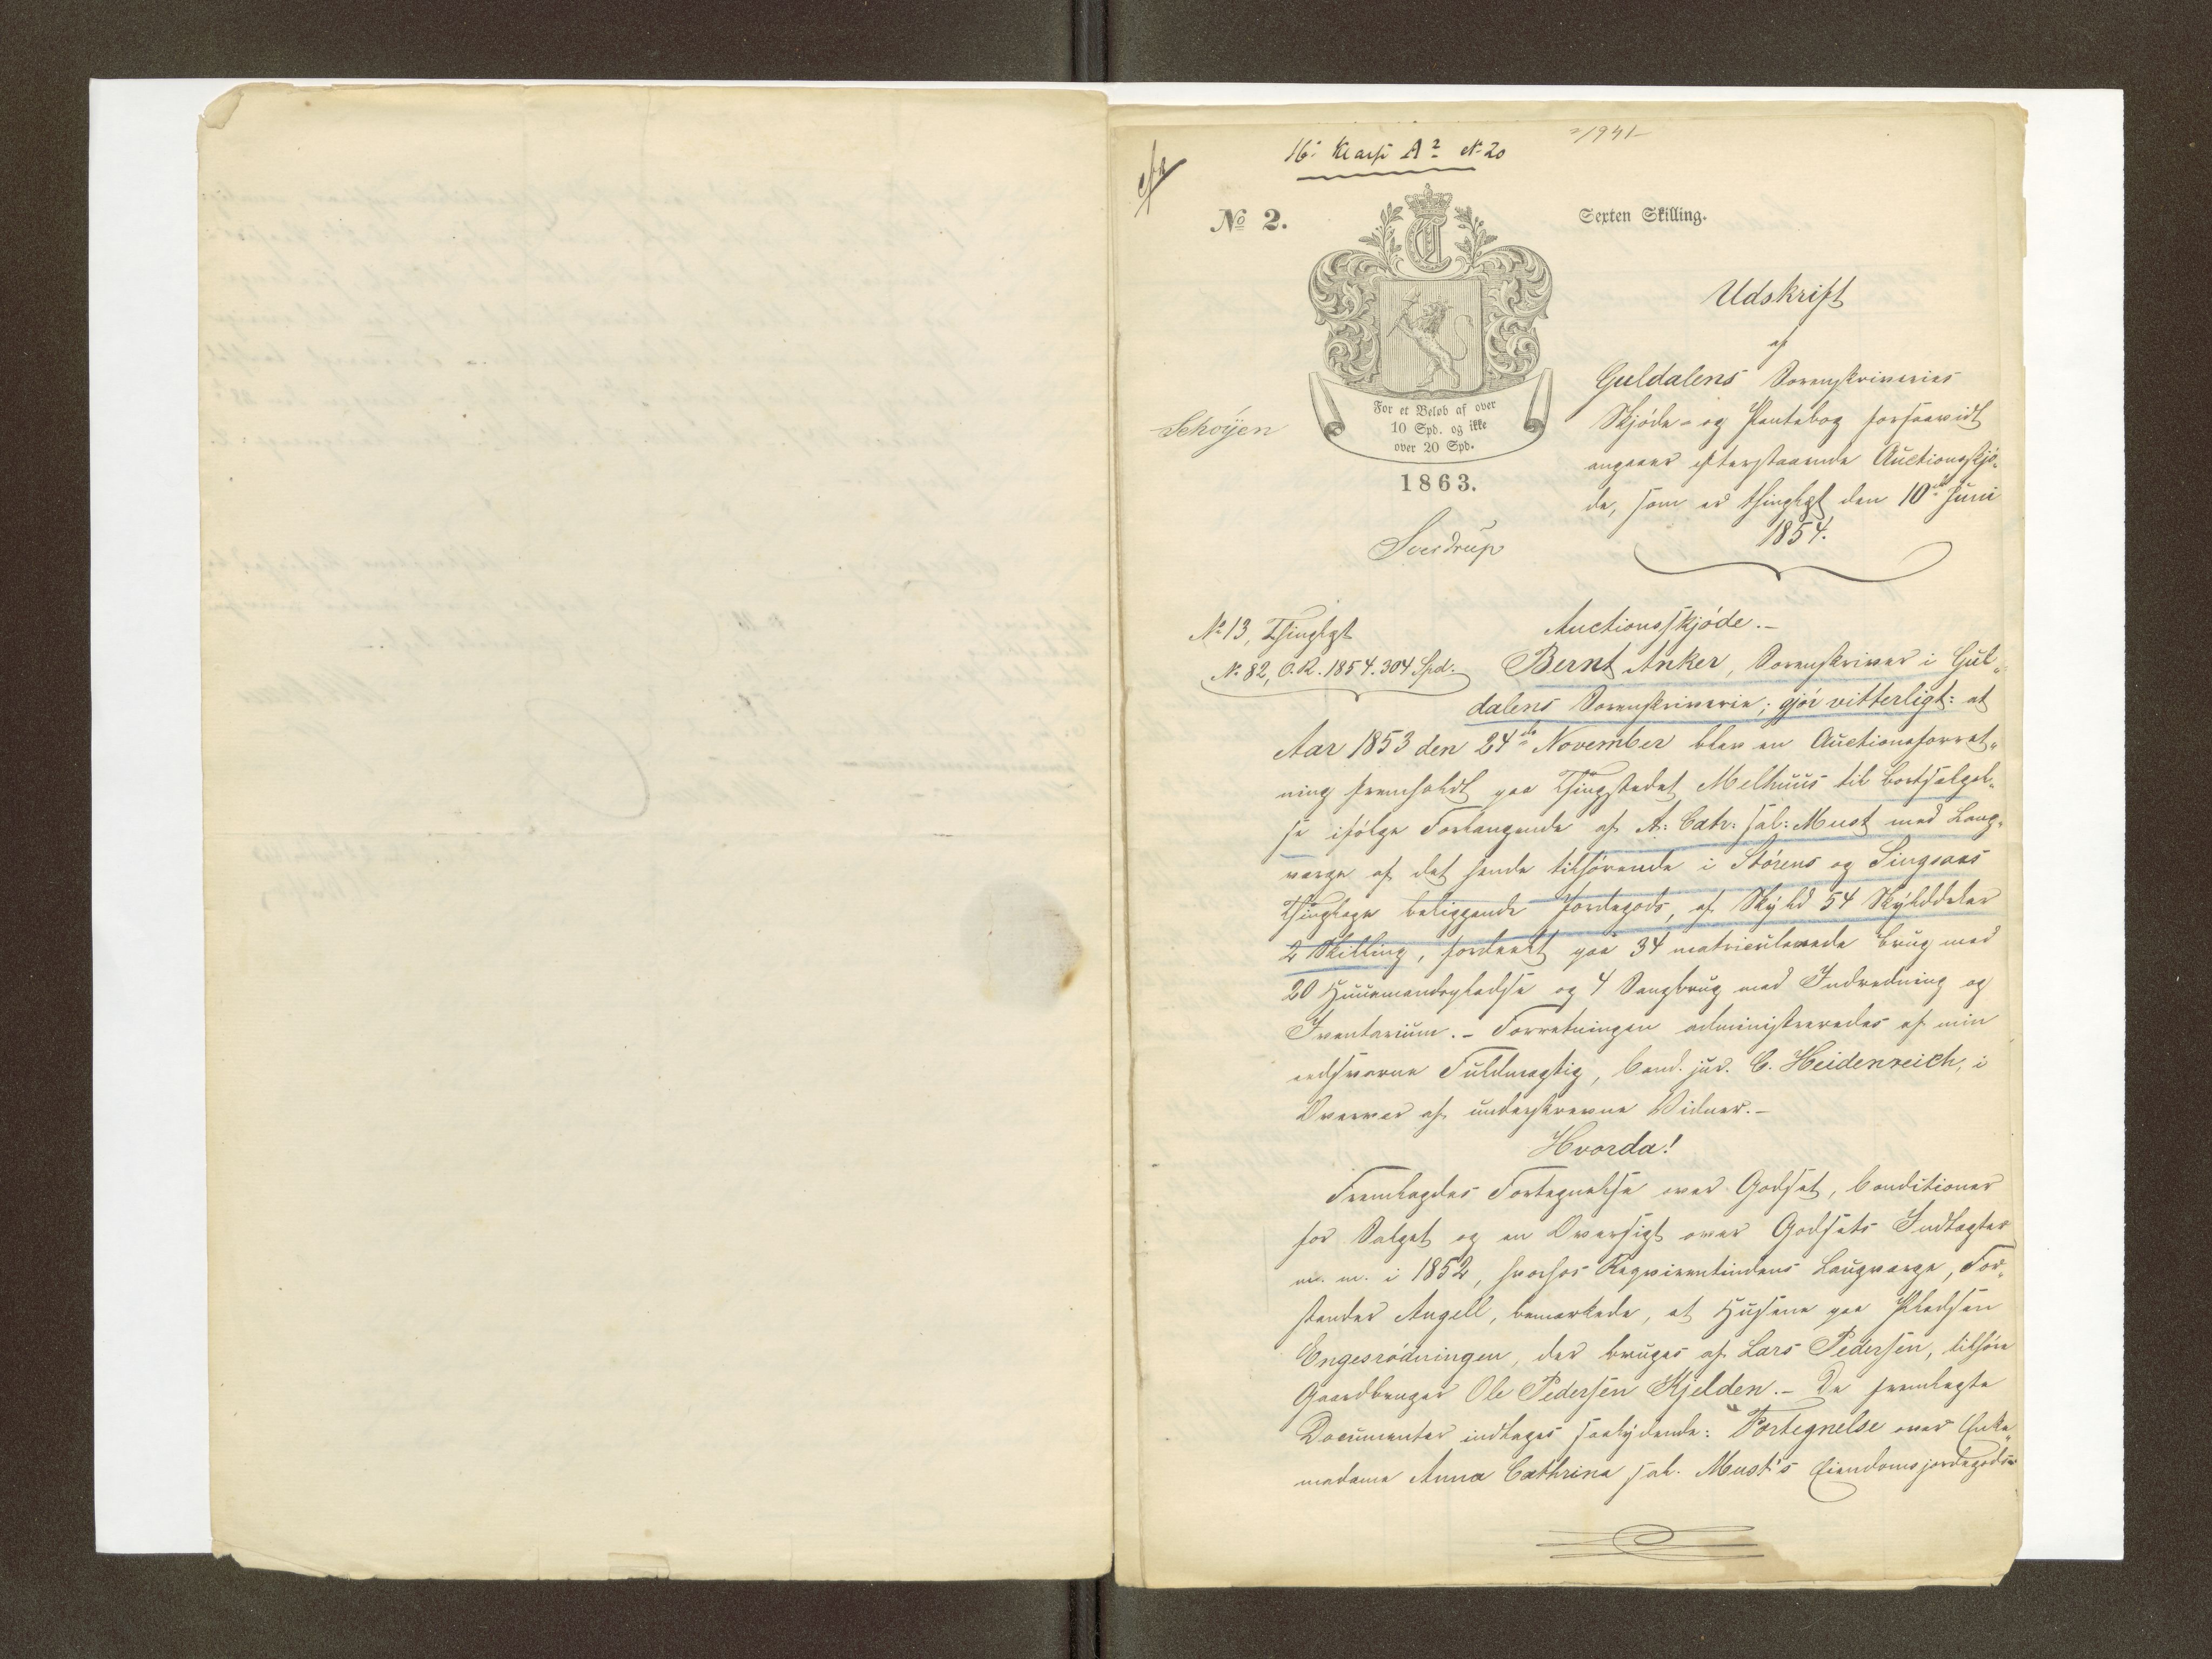 2/941
16. Klasse A2 N. 20
No 2.
Sexten Skilling.
For et Beløb af over
10 Spd. og ikke
over 20 Spd.
1863.
Schøyen
Sverdrup
Udskrift
af
Guldalens Sorenskriveries
Skjøde- og Pantebog forsaavidt
angaaer efterstaaende Auctionsskjø-
de, som er thinglyst den 10de Juni
1854.
No 13, Thinglyst
No 82, O.R. 1854. 304 Spd.
Auctionsskjøde.-
Bernt Anker, Sorenskriver i Gul-
dalens Sorenskriverie; gjør vitterligt: at
Aar 1853 den 24de November blev en Auctionsforret-
ning fremholdt paa Thingstedet Melhuus til Bortsælgel-
se ifølge Forlangende af A: Cath: sal: Must med Laug-
værge af det hende tilhørende i Størens og Singsaas
Thinglage beliggende Jordegods, af Skyld 54 Skylddaler
2 Skilling, fordeelt paa 34 matriculerede Brug med
20 Huusmandspladse og 4 Saugbrug med Indredning og
Inventarium.- Forretningen administreredes af min
eedsvorne Fuldmægtig, Cand. jur. C. Heidenreich, i
Overvær af underskrevne Vidner.-
Hvorda!
Fremlagdes Fortegnelse over Godset, Conditioner
for Salget og en Oversigt over Godsets Indtægter
m. m. i 1852, hvorhos Reqvirentindens Laugværge, For-
stander Angell, bemærkede, at Husene paa Pladsen
Engesrødningen, der bruges af Lars Pedersen, tilhøre
Gaardbruger Ole Pedersen Kjelden.- De fremlagte
Documenter indtages saalydende: Fortegnelse over Enke-
madame Anna Cathrina sal. Must's Eiendomsjordegods